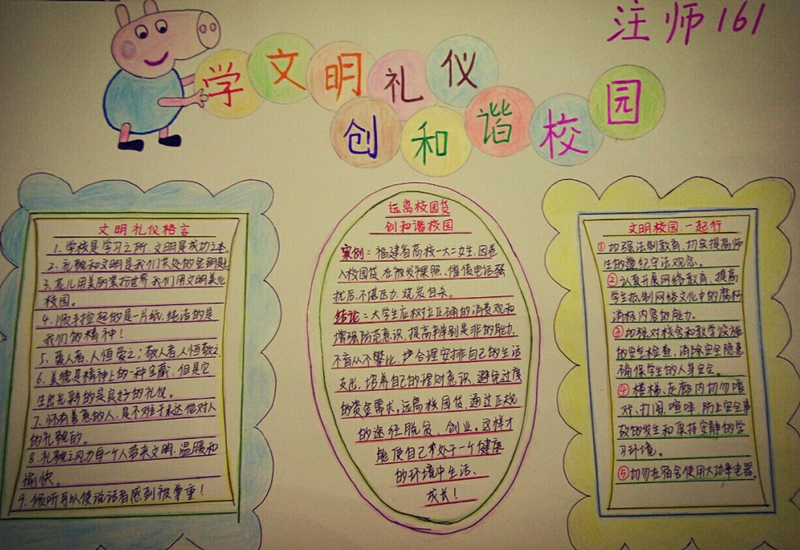 注师161
学文明礼仪
创和谐校园
文明礼仪格言
1. 学校是学习之所，文明是成功之本。
2. 礼貌和文明是我们共处的金钥匙
3. 花儿用美丽装扮世界，我们用文明美化
校园。
4. 弯下手捡起的是一片纸，纯洁的是
我们的精神！
5. 爱人者，人恒爱之；敬人者人恒敬之
6. 美德是精神上的一种宝藏，但是它
生出光彩的是良好的礼仪。
7. 怀着善意的人，是不难于表达他对人
的礼貌的。
8. 礼貌之风为每一个人带来文明、温暖和
愉快。
9. 倾听可以使说话者感到被尊重！
远离校园贷
创和谐校园
案例：福建省高校一大二女生，因卷
入校园贷
不堪压力，烧炭自杀。
结论：大学生应树立正确的消费观和
增强防范意识，提高辨别是非的能力，
不盲从不攀比，合理安排自己的生活
支出，培养自己的理财意识，避免过度
的资金需求，远离校园贷，通过正规
的途径脱贫、创业。这样才
能使自己处于一个健康
的环境中生活、
成长！
文明校园，一起行
①加强法制教育，切实提高师
生的遵纪守法观念。
②认真开展网络教育，提高
学生抵制网络文化中的腐朽
消极内容的能力。
③加强对校舍和教学设施
的安全检查，消除安全隐患
确保学生的人身安全。
④楼梯、走廊内切勿嘻
对、打闹、喧哗，防止安全事
故的发生和保持安静的学
习环境。
⑤切勿在宿舍使用大功率电器。